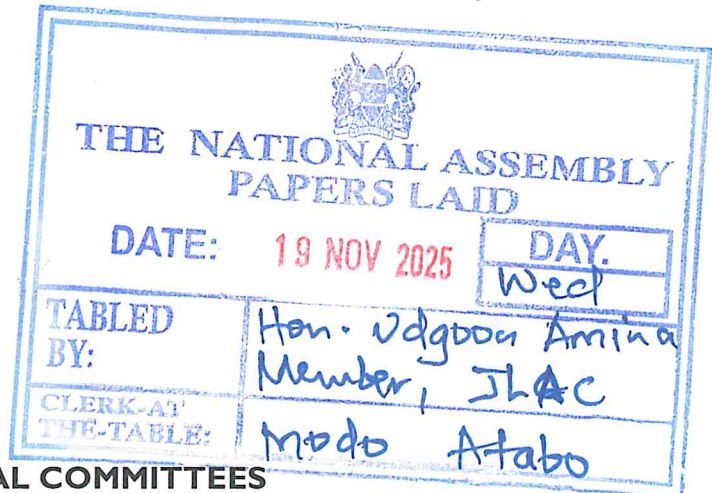 THE NATIONAL ASSEMBLY
PAPERS LAID
DATE: 19 NOV 2025 DAY.
Wed
TABLED BY: Hon. Udgoon Amina
Member, JLAC
CLERK-AT THE-TABLE: Modo Atabo
AL COMMITTEES